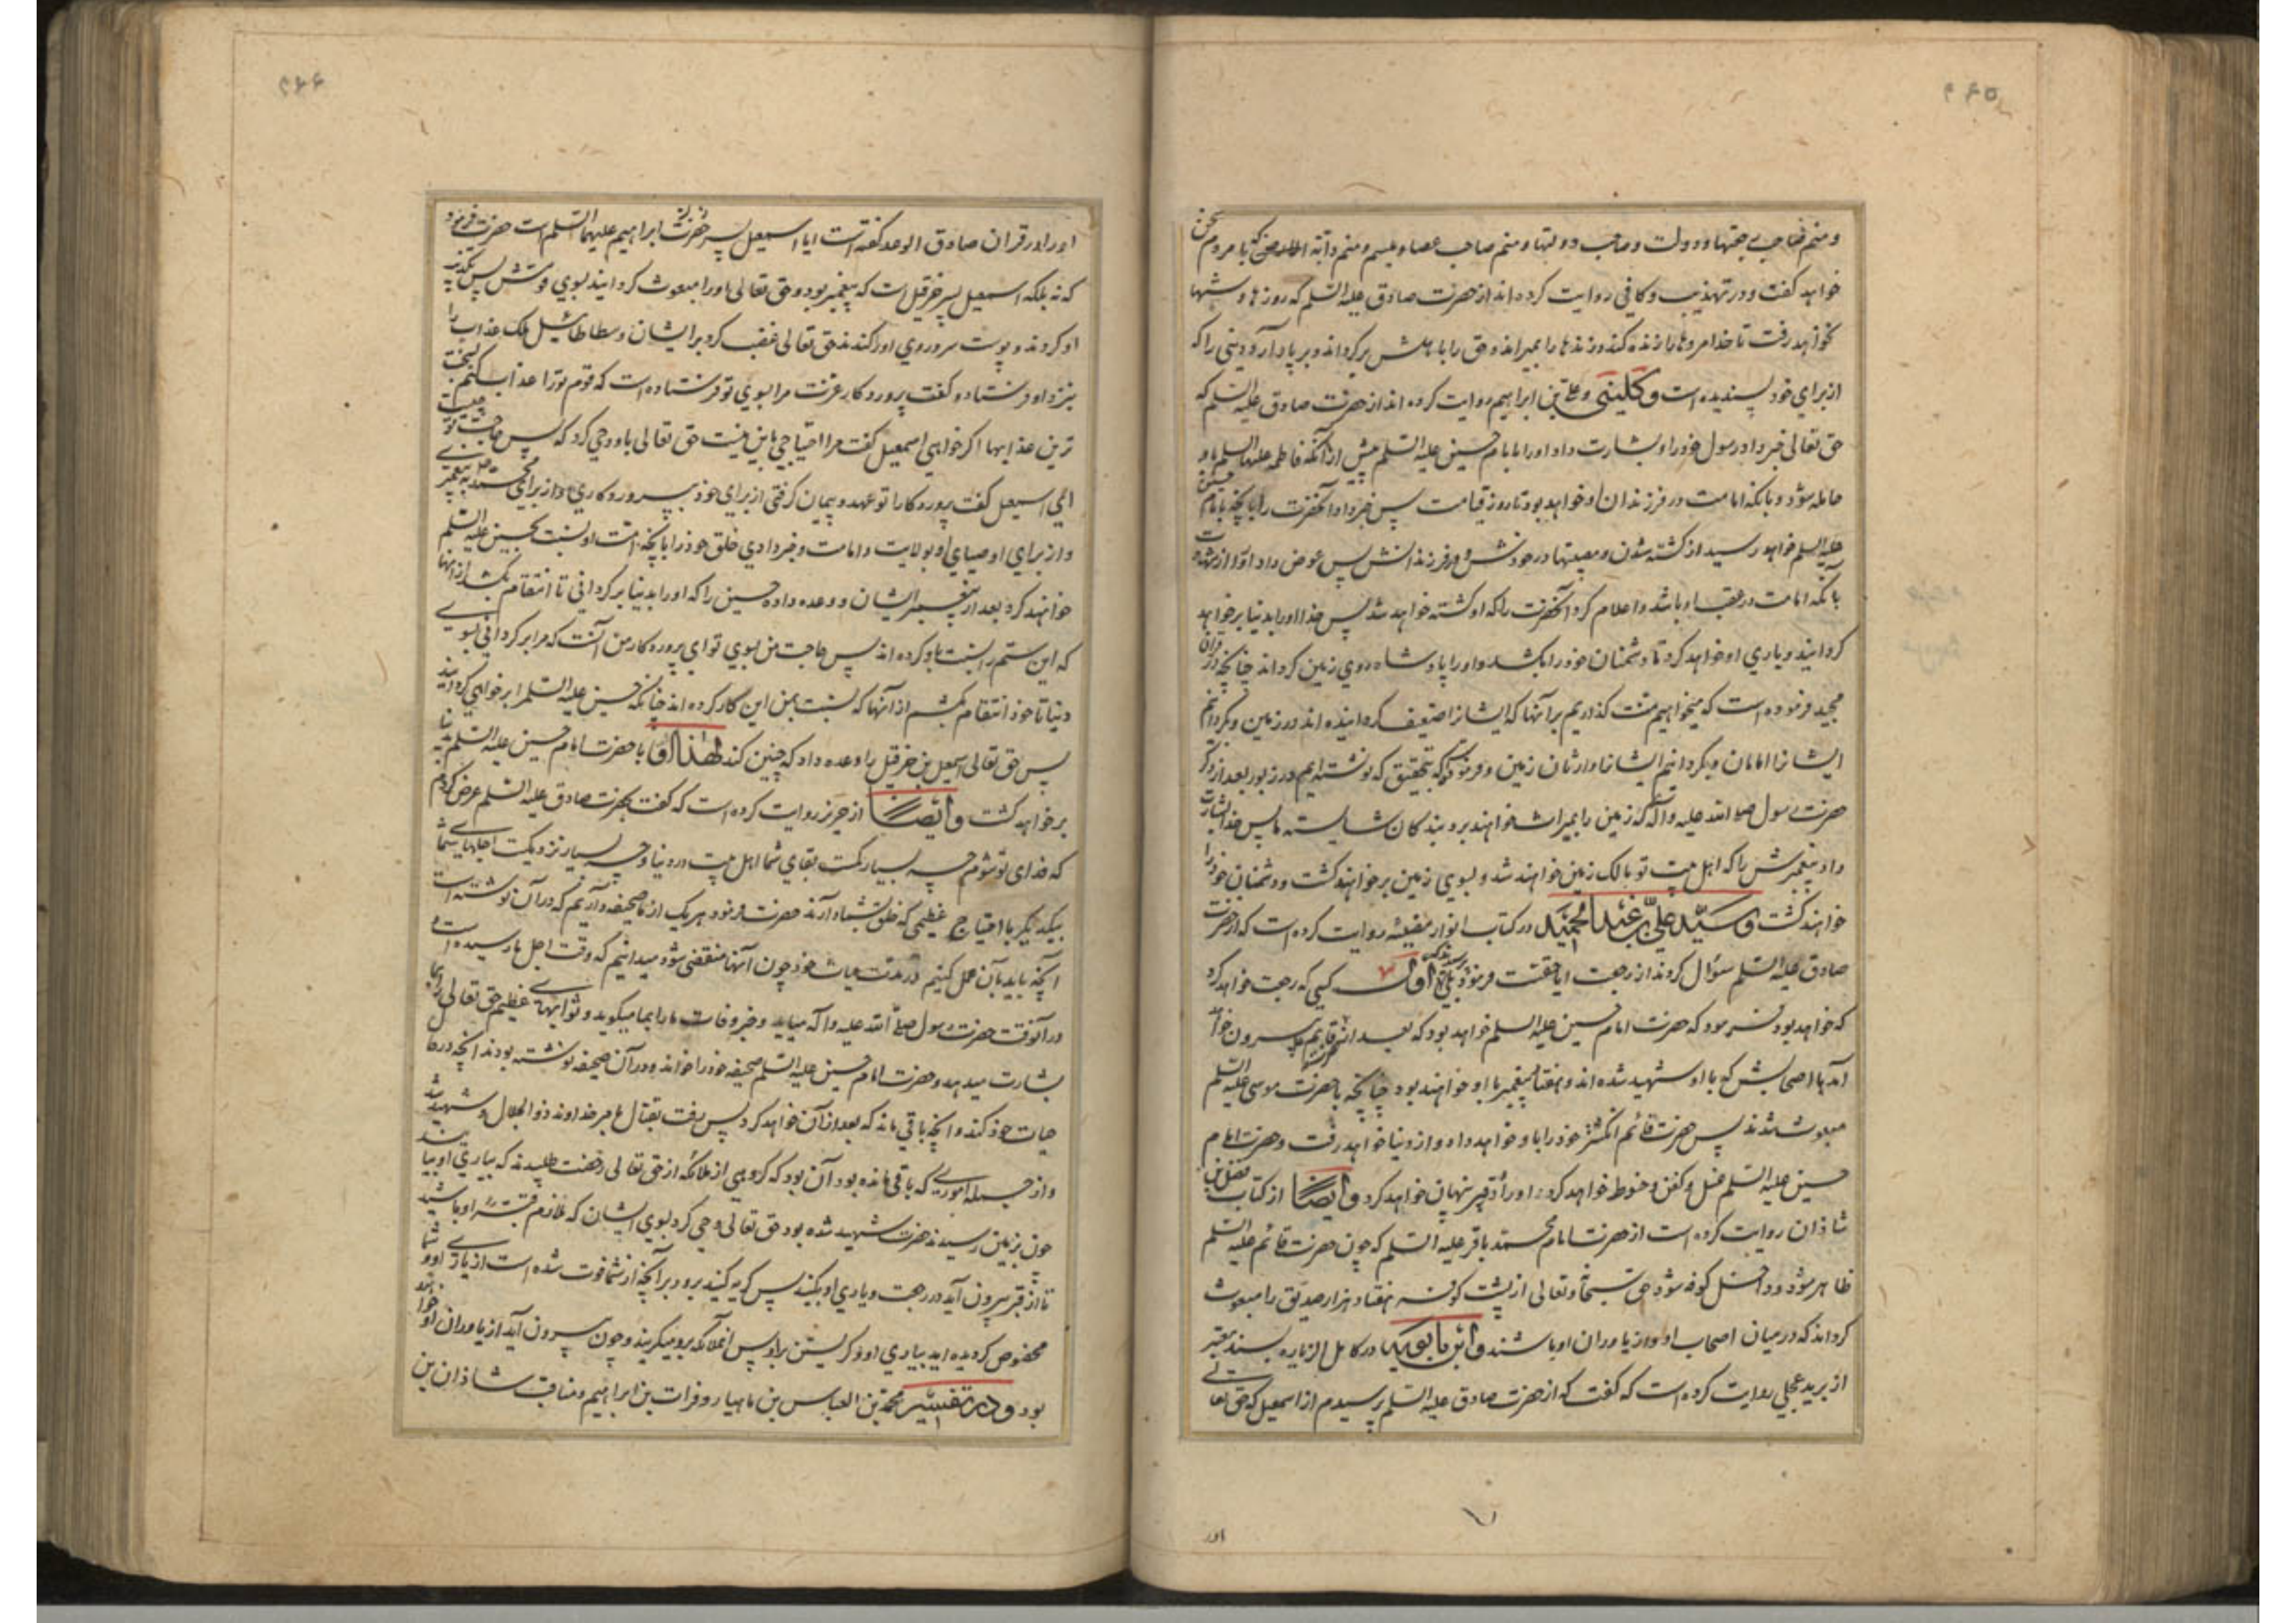 ۴۶۵
و منم صاحب رجعتها و دولت و صاحب دولتها و منم صاحب عصا و میسم و منم دابة الارض که با مردم سخن
خواهد گفت و در تهذیب و کافی روایت کرده اند از حضرت صادق علیه السلم که روزها و شبها
نخواهد رفت تا خدا مردها را زنده کند و زندها را بمیراند و حق را باهلش برگرداند و بر پا دارد دینی را که
از برای خود پسندیده است و کلینی و علی بن ابراهیم روایت کرده اند از حضرت صادق علیه السلم که
حق تعالی خبر داد رسول خود را و بشارت داد او را بامام حسین علیه السلم پیش از آنکه فاطمه علیها السلم باو
حامله شود و بانکه امامت در فرزندان او خواهد بود تا روز قیامت پس خبر داد آنحضرت را بانچه بامام حسین
علیه السلم خواهد رسید از کشته شدن و مصیبتها در خودش و در فرزندانش پس عوض داد او را از شهادت
بآنکه امامت در عقب او باشد و اعلام کرد آنحضرت را که او کشته خواهد شد پس خدا او را بدنیا بر خواهد
گردانید و یاری او خواهد کرد تا دشمنان خود را بکشد و او را پادشاه روی زمین گرداند چنانچه در قران
مجید فرموده است که میخواهیم منت گذاریم بر آنها که ایشانرا ضعیف گردانیده اند در زمین و بگردانیم
ایشانرا امامان و بگردانیم ایشانرا وارثان زمین و فرموده که بتحقیق که نوشته ایم در زبور بعد از ذکر
حضرت رسول صلی الله علیه و آله که زمین را بمیراث خواهند برد بندکان شایسته ما پس خدا بشارت
داد پیغمبرش را که اهل بیت تو مالک زمین خواهند شد و بسوی زمین بر خواهند گشت و دشمنان خود را
خواهند کشت و سید علی بن عبد الحمید در کتاب انوار مضیئه روایت کرده است که از حضرت
صادق علیه السلم سؤال کردند از رجعت ایا حقست فرمود بلی پرسیدند که اول کسی که رجعت خواهد کرد
که خواهد بود فرمود که حضرت امام حسین علیه السلم خواهد بود که بعد از قایم بیرون خواهد
آمد با اصحابش که با او شهید شده اند و هفتاد پیغمبر با او خواهند بود چنانچه با حضرت موسی علیه السلم
مبعوث شدند پس حضرت قائم انگشتر خود را باو خواهد داد و از دنیا خواهد رفت و حضرت امام
حسین علیه السلم غسل و کفن و حنوط خواهد کرد و او را در قبر پنهان خواهد کرد و ایضا از کتاب فضل بن
شاذان روایت کرده است از حضرت امام محمد باقر علیه السلم که چون حضرت قائم علیه السلم
ظاهر شود و داخل کوفه شود حق سبحانه و تعالی از پشت کوفه هفتاد هزار صدیق را مبعوث
گرداند که در میان اصحاب او و از یاوران او باشند و ابن بابویه در کامل الزیاره بسند معتبر
از برید عجلی روایت کرده است که گفت که از حضرت صادق علیه السلم پرسیدم از اسمعیل که حق تعالی
اور
۴۶۶
او را در قران صادق الوعد گفته است ایا اسمعیل پسر حضرت ابراهیم علیهما السلم است حضرت فرمود
که نه بلکه اسمعیل پسر حزقیل است که پیغمبر بود و حق تعالی او را مبعوث گردانید بسوی قومش پس تکذیب
او کردند و پوست سر و روی او را کندند حق تعالی غضب کرد بر ایشان و سطاطائیل ملک عذاب را
بنزد او فرستاد و گفت پروردکار عزت مرا بسوی تو فرستاده است که قوم تو را عذاب کنم بسخت
ترین عذابها اگر خواهی اسمعیل گفت مرا احتیاجی باین نیست حق تعالی باو وحی کرد که پس حاجت تو چیست
ای اسمعیل گفت پروردکارا تو عهد و پیمان گرفتی از برای خود بپروردکاری و از برای محمد به پیغمبری
و از برای اوصیای او بولایت و امامت و خبر دادی خلق خود را بانچه امت او نسبت بحسین علیه السلم
خواهند کرد بعد از پیغمبر ایشان و وعده داده حسین را که او را بدنیا برگردانی تا انتقام بکشد از آنها
که این ستم را نسبت باو کرده اند پس حاجت من بسوی تو ای پروردکار من آنست که مرا برگردانی بسوی
دنیا تا خود انتقام بکشم از آنها که نسبت بمن این کار کرده اند چنانکه حسین علیه السلم را بر خواهی گردانید
پس حق تعالی اسمعیل بن حزقیل را وعده داد که چنین کند لهذا او با حضرت امام حسین علیه السلم بدنیا
بر خواهد گشت و ایضا از حریز روایت کرده است که گفت بحضرت صادق علیه السلم عرض کردم
که فدای تو شوم چه بسیار کمست بقای شما اهل بیت در دنیا و چه بسیار نزدیکست اجلهای شما
بیکدیگر با احتیاج عظیمی که خلق بشما دارند حضرت فرمود هر یک از ما صحیفه داریم که در آن نوشته است
آنچه باید بآن عمل کنیم در مدت حیات خود چون آنها منقضی شود میدانیم که وقت اجل ما رسیده است و
در آنوقت حضرت رسول صلی الله علیه و آله میاید و خبر وفات ما را بما میگوید و ثوابهای عظیم حق تعالی را بما
بشارت میدهد و حضرت امام حسین علیه السلم صحیفه خود را خواند و در آن صحیفه نوشته بودند آنچه در حال
حیات خود کند و آنچه باقی ماند که بعد از آن خواهد کرد پس رفت بقتال بامر خداوند ذو الجلال و شهید شد
و از جمله اموری که باقی مانده بود آن بود که گروهی از ملائکه از حق تعالی رخصت طلبیدند که بیاری او بیایند
چون بزمین رسیدند حضرت شهید شده بود حق تعالی وحی کرد بسوی ایشان که ملازم قبر او باشید
تا از قبر بیرون آید در رجعت و یاری او بکنید پس گریه کنید برو و بر آنچه از شما فوت شده است از یاری او و شما
مخصوص گردیده اید بیاری او و گریستن بر او پس آنملائکه برو میگریند و چون بیرون آید از یاوران او خواهند
بود و در تفسیر محمد بن العباس بن ماهیار و فرات بن ابراهیم و مناقب شاذان بن